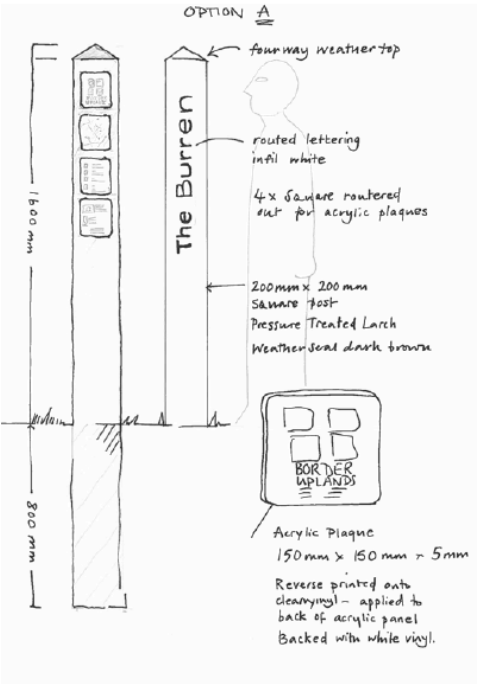 OPTION A
four way weather top
The Burren
routed lettering
infil white
4x Square routered
out for acrylic plaques
1600 mm
200mm x 200 mm
Square post
Pressure Treated Larch
Weather seal dark brown
BORDER
UPLANDS
800 mm
Acrylic Plaque
150mm x 150 mm - 5mm
Reverse printed onto
clearvinyl - applied to
back of acrylic panel
Backed with white vinyl.